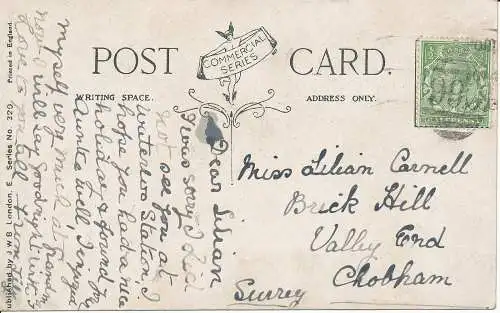 POST CARD.
COMMERCIAL
SERIES
WRITING SPACE.
ADDRESS ONLY.
Printed in England.
Published by J.W.B. London, E. Series No. 320.
Dear Lilian
I was sorry I did
not see you at
Waterloo Station, I
hope you had a nice
holiday & found
Auntie well, I enjoyed
myself very much at Grandma
now I will say Goodnight with
Love to you all from
Miss Lilian Carnell
Brick Hill
Valley End
Chobham
Surrey